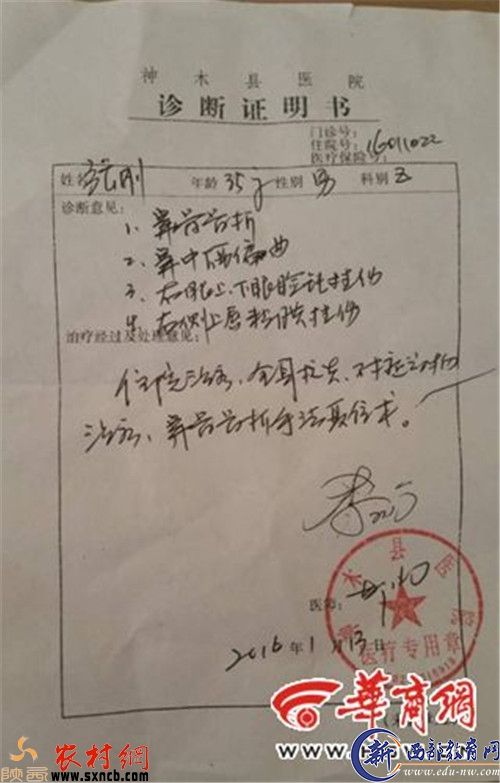 神木县医院
诊断证明书
门诊号:
住院号: 16011022
医疗保险号:
姓名 刚 年龄 35岁 性别 男 科别 五
诊断意见:
1、鼻骨骨折
2、鼻中隔偏曲
3、右眼上、下眼睑钝挫伤
4、右侧上唇粘膜挫伤
治疗经过及处理意见:
住院治疗,全身抗炎、对症
治疗、鼻骨骨折手法复位术。
医师:
2016年1月13日
神木县医院
医疗专用章
陕西
农村網
www.sxncb.com
華商網
新西部教育网
www.edu-nw.com